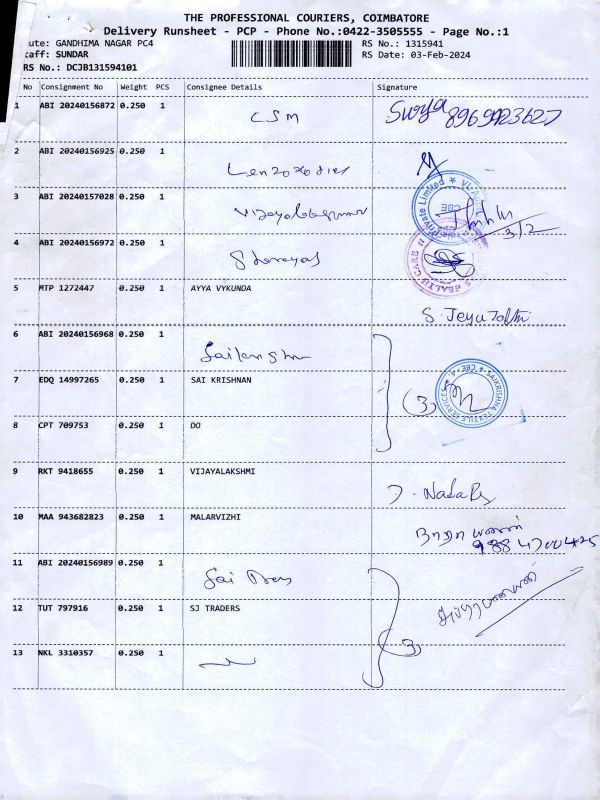 THE PROFESSIONAL COURIERS, COIMBATORE
Delivery Runsheet - PCP - Phone No.:0422-3505555 - Page No.:1
ute: GANDHIMA NAGAR PC4
RS No.: 1315941
taff: SUNDAR
RS Date: 03-Feb-2024
RS No.: DCJB131594101
No Consignment No Weight PCS Consignee Details Signature
1 ABI 20240156872 0.250 1 CSM Surya
2 ABI 20240156925 0.250 1
3 ABI 20240157028 0.250 1 3/2
4 ABI 20240156972 0.250 1
5 MTP 1272447 0.250 1 AYYA VYKUNDA S. Jeya
6 ABI 20240156968 0.250 1
7 EDQ 14997265 0.250 1 SAI KRISHNAN (3) SAIKRISHNA TEXTILE SERVICES CBE
8 CPT 709753 0.250 1 DO
9 RKT 9418655 0.250 1 VIJAYALAKSHMI
10 MAA 943682823 0.250 1 MALARVIZHI
11 ABI 20240156989 0.250 1 Sai
12 TUT 797916 0.250 1 SJ TRADERS (3)
13 NKL 3310357 0.250 1